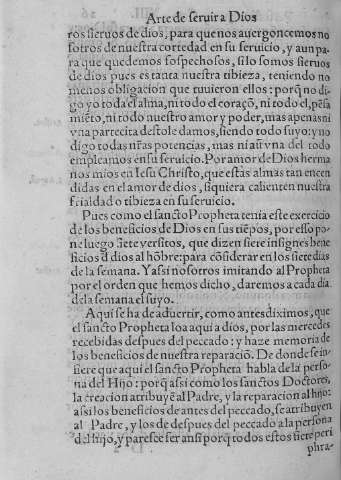 Arte de seruir a Dios
ros sieruos de dios, para que nos auergoncemos no
sotros de nuestra cortedad en su seruicio, y aun pa
ra que quedemos sospechosos, si lo somos sieruos
de dios pues es tanta nuestra tibieza, teniendo no
menos obligacion que tuuieron ellos: porq̃ no di
go yo toda el alma, ni todo el coraçõ, ni todo el, pẽsa
miẽto, ni todo nuestro amor y poder, mas apenas ni
vna partecita destole damos, siendo todo suyo: y no
digo todas nr̃as potencias, mas ni aũ vna del todo
empleamos en su seruicio. Por amor de Dios herma
nos mios en Iesu Christo, que estas almas tan encen
didas en el amor de dios, si quiera calienten nuestra
frialdad o tibieza en su seruicio.
Pues como el sancto Propheta tenia este exercicio
de los beneficios de Dios en sus tiẽpos, por esso po-
ne luego siete versitos, que dizen siete insignes bene
ficios d̃ dios al hõbre: para cõsiderar en los siete dias
de la semana. Y assi nosotros imitando al Propheta
por el orden que hemos dicho, daremos a cada dia
de la semana el suyo.
Aqui se ha de aduertir, como antes diximos, que
el sancto Propheta loa aqui a dios, por las mercedes
recebidas despues del peccado: y haze memoria de
los beneficios de nuestra reparaciõ. De donde se in-
fiere que aqui el sancto Propheta habla de la perso-
na del Hijo: porq̃ assi como los sanctos Doctores,
la creacion atribuyẽ al Padre, y la reparacion al hijo:
assi los beneficios de antes del peccado, se atribuyen
al Padre, y los de despues del peccado a la persona
del hijo, y paresce ser ansi porq̃ todos estos siete peri
phra-